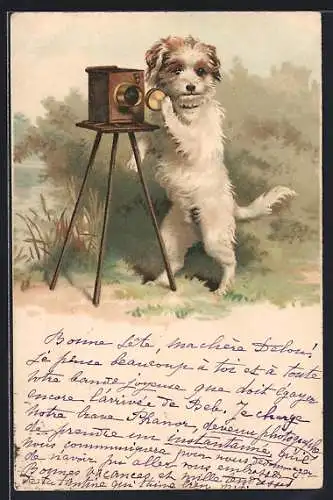 Bonne fête, ma chère Delou!
Je pense beaucoup à toi et à toute
votre bande joyeuse que doit égayer
encore l'arrivée de Beb. Je charge
notre brave Phanor, devenu photographe
de prendre un instantané qu'il
nous communiquera pour nous
de n'avoir pu aller vous embrasser.
Bonnes vacances et mille
tantine qui t'aime bien.